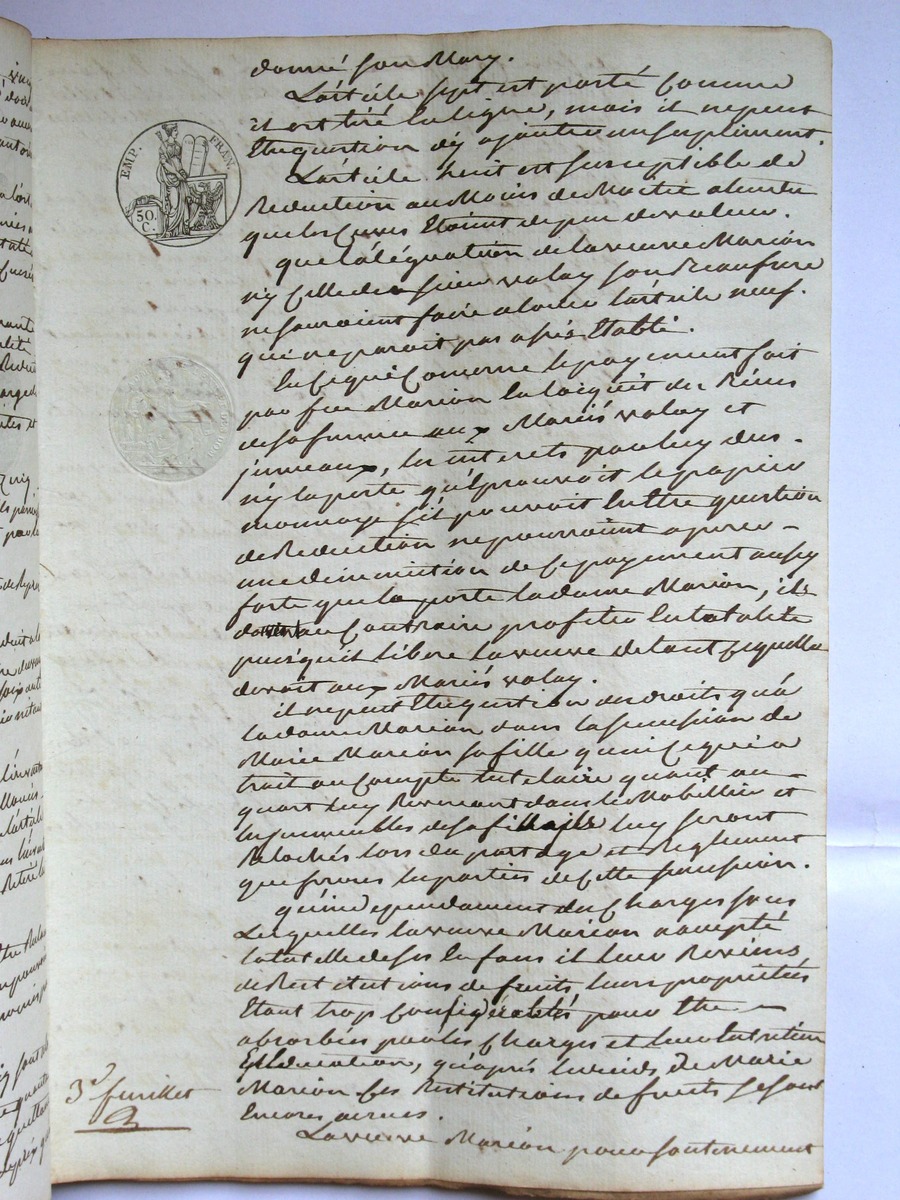 donné son Mary.
L'article sept est porté Comme
il est tiré en ligne, mais il ne peut
Etre question d'y ajoutter un suplément.
EMP. FRAN.
50. C.
L'article huit est susceptible de
Reduction au Moins de Moitié attendu
que les Cuves Etoint de peu de valeur.
que l'alégnation de la veuve Marion
n'y Celle du sieur valay son Beaufrere
ne sauroint faire alouer l'article neuf.
qui ne paroit pas assés Etabli.
En Ce qui Concerne le payement fait
par feu Marion En l'acquit des Biens
de sa femme aux Mariés valay et
jumeaux, les interets par luy dus
n'y la perte qu'éprouvoit le papier
monnoye s'il pouvoit En Etre question
de Reduction ne pourroint operer
une diminution de Ce payement aussy
forte que la porte la dame Marion, il
doit au Contraire profiter En totalité
puisqu'il libere la veuve de tant Ce qu'elle
devoit aux Mariés valay.
il ne peut Etre question des droits qu'a
la dame Marion dans la succession de
Marie Marion sa fille qu'en Ce qui a
trait au Compte tutelaire quant au
quart luy Revenant dans le Mobillier et
les immeubles de sa fille ils luy seront
Relachés lors du partage et Reglement
que feront les parties de Cette succession.
qu'independament des Charges sous
Lesquelles la veuve Marion a accepté
la tutelle de ses Enfans il leur Reviens
de Restitutions de fruits leurs propriétés
Etant trop Considerables pour Etre
absorbées par les Charges et leur Entretien
Et Education, qu'aprés le decés de Marie
Marion Ces Restitutions de fruits se sont
Encores acrues.
La veuve Marion pour soutenement
3e feuillet